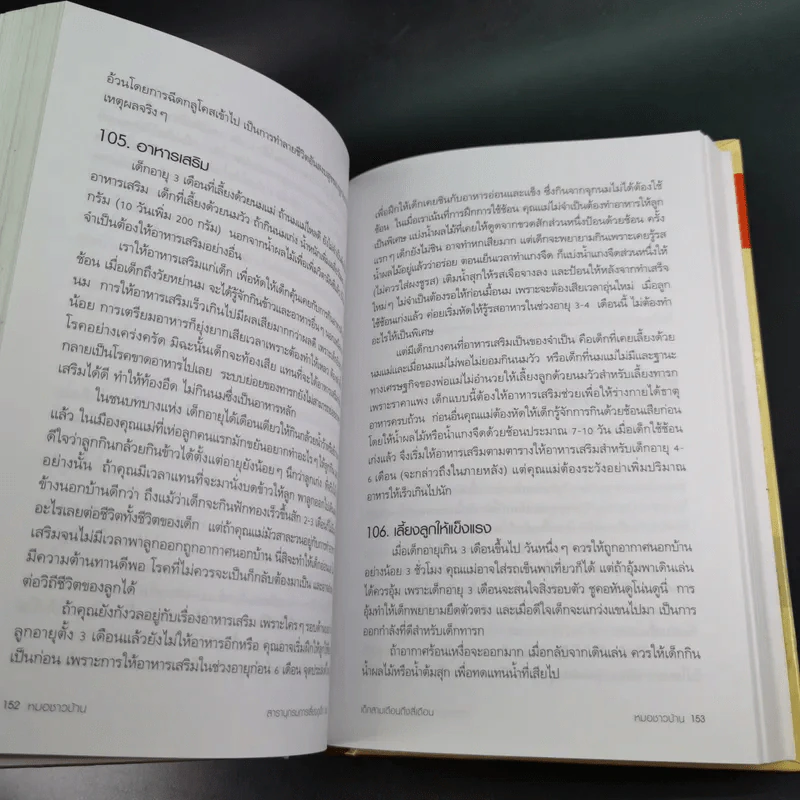 อ้วนโดยการฉีดกลูโคสเข้าไป เป็นการทำลายชีวิตอันสงบสุขของ
เหตุผลจริงๆ
105. อาหารเสริม
เด็กอายุ 3 เดือนที่เลี้ยงด้วยนมแม่ ถ้านมแม่ไหลดี
อาหารเสริม เด็กที่เลี้ยงด้วยนมวัว ถ้ากินนมเก่ง น้ำหนักเพิ่ม
กรัม (10 วันเพิ่ม 200 กรัม) นอกจากน้ำผลไม้เพื่อเพิ่มวิตามินซีแล้ว
จำเป็นต้องให้อาหารเสริมอย่างอื่น
เราให้อาหารเสริมแก่เด็ก เพื่อหัดให้เด็กคุ้นเคยกับการกินอาหาร
ช้อน เมื่อเด็กถึงวัยหย่านม จะได้รู้จักกินข้าวและอาหารอื่นๆ นอก
นม การให้อาหารเสริมเร็วเกินไปมีผลเสียมากกว่าผลดี เพราะเด็ก
น้อย การเตรียมอาหารก็ยุ่งยากเสียเวลาเพราะต้องทำให้
โรคอย่างเคร่งครัด มิฉะนั้นเด็กจะท้องเสีย แทนที่จะได้อาหาร
กลายเป็นโรคขาดอาหารไปเลย ระบบย่อยของทารกยังไม่สามารถ
เสริมได้ดี ทำให้ท้องอืด ไม่กินนมซึ่งเป็นอาหารหลัก
ในชนบทบางแห่ง เด็กอายุได้เดือนเดียวก็ให้กินกล้วยน้ำว้า
แล้ว ในเมืองคุณแม่ที่เห่อลูกคนแรกมักขยันอยากทำอะไรๆ ให้ลูกกิน
ดีใจว่าลูกกินกล้วยกินข้าวได้ตั้งแต่อายุยังน้อยๆ นึกว่าลูกเก่ง
อย่างนั้น ถ้าคุณมีเวลาแทนที่จะมานั่งบดข้าวให้ลูก พาลูกออกไป
ข้างนอกบ้านดีกว่า ถึงแม้ว่าเด็กจะกินฟักทองเร็วขึ้นสัก 2-3 เดือนก็ไม่
อะไรเลยต่อชีวิตทั้งชีวิตของเด็ก แต่ถ้าคุณแม่มัวสาละวนอยู่กับการ
เสริมจนไม่มีเวลาพาลูกออกถูกอากาศนอกบ้าน นี่สิจะทำให้
มีความต้านทานดีพอ โรคที่ไม่ควรจะเป็นก็กลับต้องมาเป็น และ
ต่อวิถีชีวิตของลูกได้
ถ้าคุณยังกังวลอยู่กับเรื่องอาหารเสริม เพราะใครๆ รอบ
ลูกอายุตั้ง 3 เดือนแล้วยังไม่ให้อาหารอีกหรือ คุณอาจเริ่มฝึกให้ลูก
เป็นก่อน เพราะการให้อาหารเสริมในช่วงอายุก่อน 6 เดือน
152 หมอชาวบ้าน
สารานุกรมการเลี้ยงดูเด็ก
เพื่อฝึกให้เด็กเคยชินกับอาหารอ่อนและแข็ง ซึ่งกินจากจุกนมไม่ได้ต้องใช้
ช้อน ในเมื่อเราเน้นที่การฝึกการใช้ช้อน คุณแม่ไม่จำเป็นต้องทำอาหารให้ลูก
เป็นพิเศษ แบ่งน้ำผลไม้ที่เคยให้ดูดจากขวดสักส่วนหนึ่งป้อนด้วยช้อน ครั้ง
แรกๆ เด็กยังไม่ชิน อาจทำหกเสียมาก แต่เด็กจะพยายามกินเพราะเคยรู้รส
น้ำผลไม้อยู่แล้วว่าอร่อย ตอนเย็นเวลาทำแกงจืด ก็แบ่งน้ำแกงจืดส่วนหนึ่งให้
(ไม่ควรใส่ผงชูรส) เติมน้ำสุกให้รสเจือจางลง และป้อนให้หลังจากทำเสร็จ
ใหม่ๆ ไม่จำเป็นต้องรอให้ก่อนมื้อนม เพราะจะต้องเสียเวลาอุ่นใหม่ เมื่อลูก
ใช้ช้อนเก่งแล้ว ค่อยเริ่มหัดให้รู้รสอาหารในช่วงอายุ 3-4 เดือนนี้ ไม่ต้องทำ
อะไรให้เป็นพิเศษ
แต่มีเด็กบางคนที่อาหารเสริมเป็นของจำเป็น คือเด็กที่เคยเลี้ยงด้วย
นมแม่และเมื่อนมแม่ไม่พอไม่ยอมกินนมวัว หรือเด็กที่นมแม่ไม่มีและฐานะ
ทางเศรษฐกิจของพ่อแม่ไม่อำนวยให้เลี้ยงลูกด้วยนมวัวสำหรับเลี้ยงทารก
เพราะราคาแพง เด็กแบบนี้ต้องให้อาหารเสริมช่วยเพื่อให้ร่างกายได้ธาตุ
อาหารครบถ้วน ก่อนอื่นคุณแม่ต้องหัดให้เด็กรู้จักการกินด้วยช้อนเสียก่อน
โดยให้น้ำผลไม้หรือน้ำแกงจืดด้วยช้อนประมาณ 7-10 วัน เมื่อเด็กใช้ช้อน
เก่งแล้ว จึงเริ่มให้อาหารเสริมตามตารางให้อาหารเสริมสำหรับเด็กอายุ 4-
6 เดือน (จะกล่าวถึงในภายหลัง) แต่คุณแม่ต้องระวังอย่าเพิ่มปริมาณ
อาหารให้เร็วเกินไปนัก
106. เลี้ยงลูกให้แข็งแรง
เมื่อเด็กอายุเกิน 3 เดือนขึ้นไป วันหนึ่งๆ ควรให้ถูกอากาศนอกบ้าน
อย่างน้อย 3 ชั่วโมง คุณแม่อาจใส่รถเข็นพาเที่ยวก็ได้ แต่ถ้าอุ้มพาเดินเล่น
ได้ควรอุ้ม เพราะเด็กอายุ 3 เดือนจะสนใจสิ่งรอบตัว ชูคอหันดูโน่นดูนี่ การ
อุ้มทำให้เด็กพยายามยืดตัวตรง และเมื่อดีใจเด็กจะแกว่งแขนไปมา เป็นการ
ออกกำลังที่ดีสำหรับเด็กทารก
ถ้าอากาศร้อนเหงื่อจะออกมาก เมื่อกลับจากเดินเล่น ควรให้เด็กกิน
น้ำผลไม้หรือน้ำต้มสุก เพื่อทดแทนน้ำที่เสียไป
เด็กสามเดือนถึงสี่เดือน
หมอชาวบ้าน 153